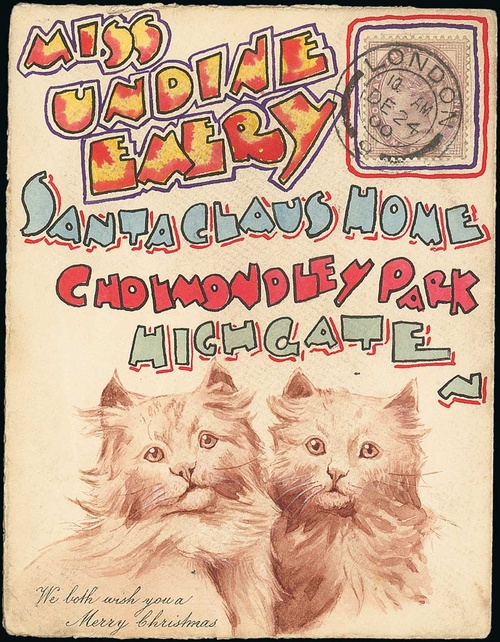 MISS
UNDINE
EMERY
LONDON
10 AM
DE 24
00
SANTA CLAUS HOME
CHOLMONDLEY PARK
HIGHGATE
N
We both wish you a
Merry Christmas